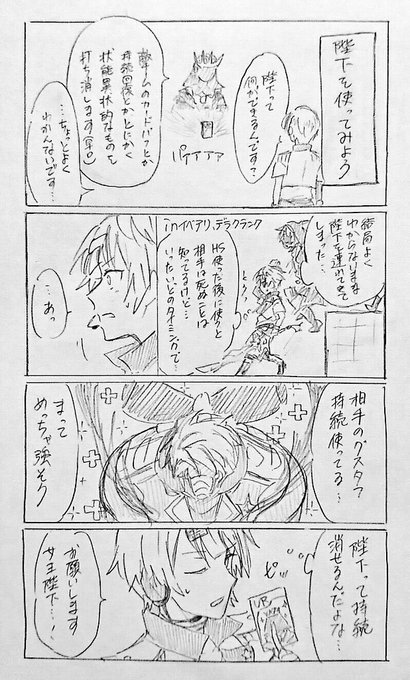 陛下を使ってみよう
陛下って
何ができるんです?
敵チームのカードバフとか
持続回復とかとにかく
状態異常的なものを
打ち消します
…ちょっとよく
わかんないです…
結局よく
わからないまま
陛下を連れてきて
しまった…
inイベアリ、デラクランク
HS使った後に使うと
相手は死ぬことは
知ってるけど…
いったいどのタイミングで…
…あっ
相手のグスタフ
持続使ってる…
まって
めっちゃ強そう
陛下って持続
消せるんだよな…
ピッ
お願いします
陛下…!